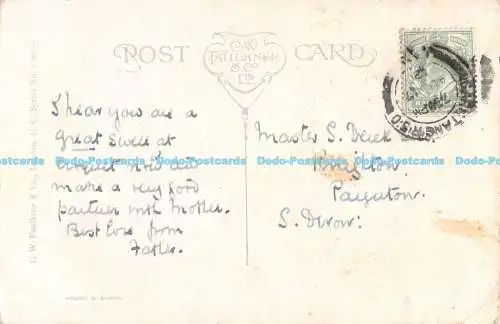 POST CARD
C.W.
FAULKNER
& CO
LTD
I hear you are a
great swell at
croquet now and
make a very good
partner with Mother.
Best love from
Father.
Master S. Deick
Paignton
S. Devon:
Dodo-Postcards Dodo-Postcards Dodo-Postcards Dodo-Postcards
C. W. Faulkner & Co., Ltd., London, E.C. Series No.